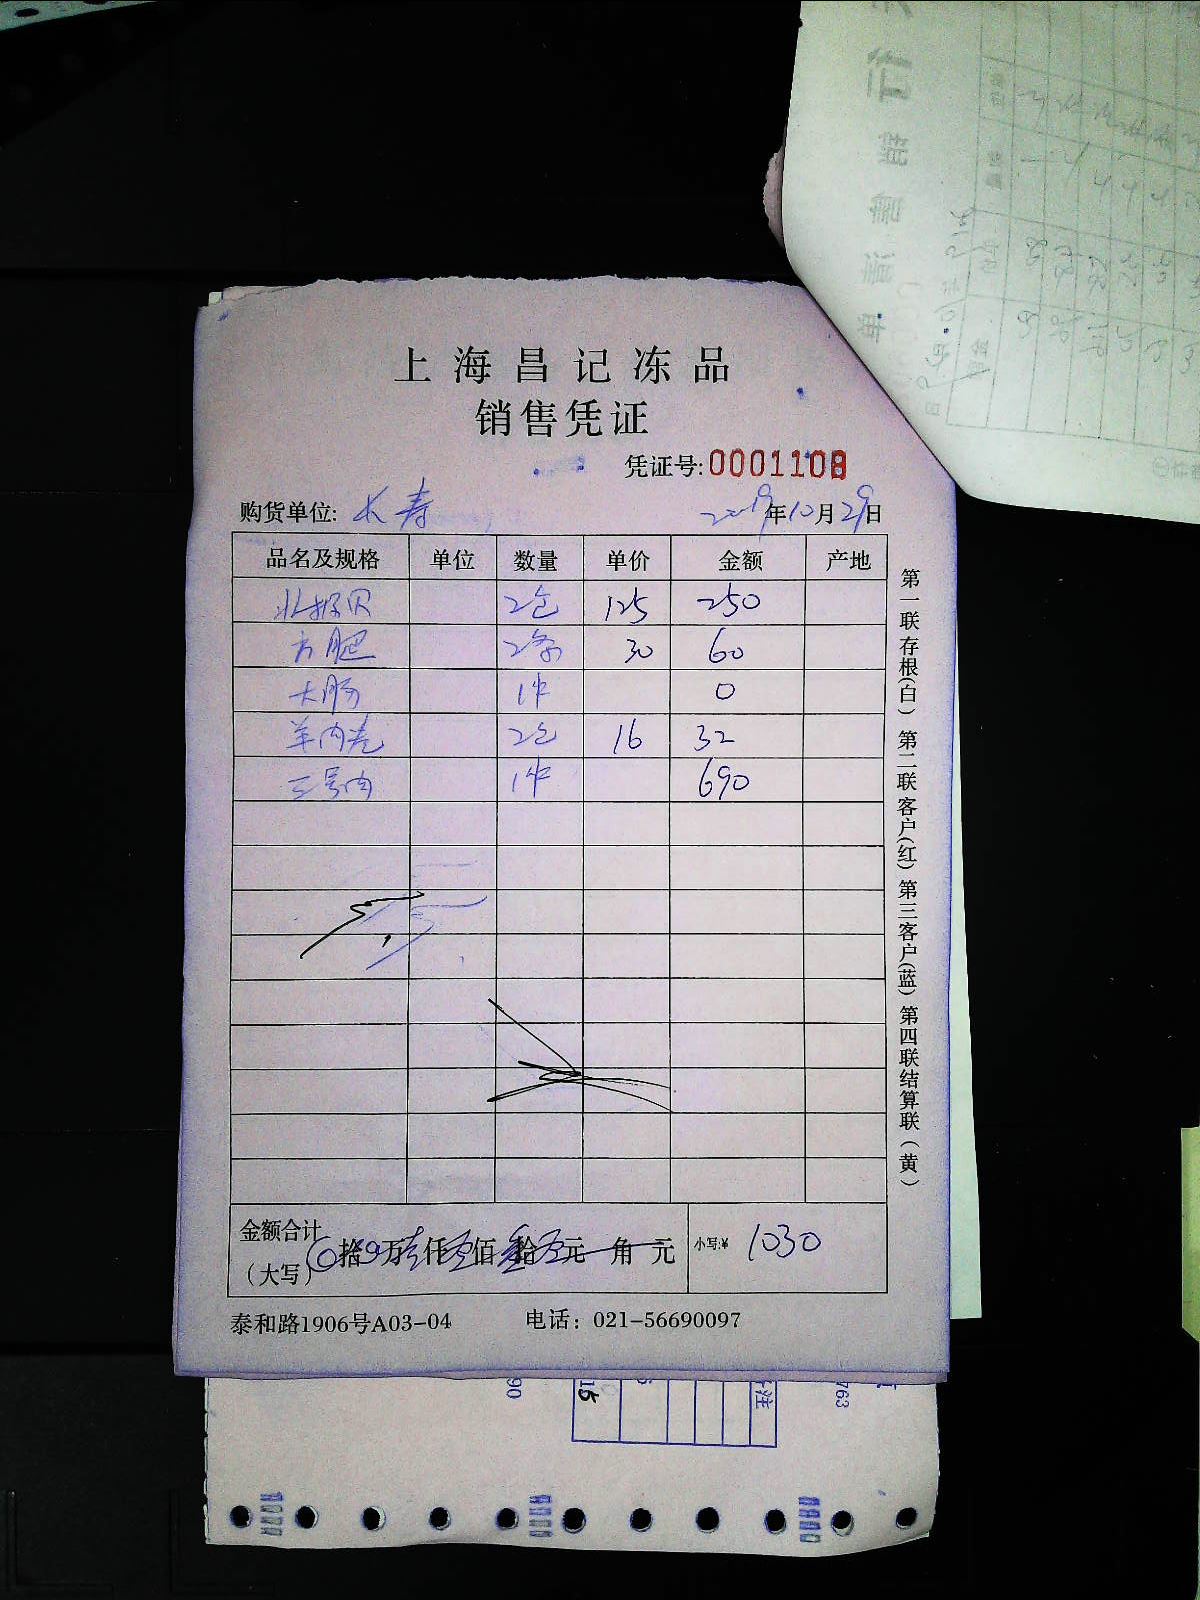 上海昌记冻品
销售凭证
凭证号:0001108
购货单位: 长寿 2019年10月29日
品名及规格 单位 数量 单价 金额 产地
北极贝 2包 125 250
方肥 2条 30 60
大肠 1件 0
羊肉卷 2包 16 32
三号肉 1件 690
金额合计
（大写） 0拾0万壹仟零佰叁拾零元 角 元 小写:¥ 1030
泰和路1906号A03-04 电话：021-56690097
第一联存根(白) 第二联客户(红) 第三客户(蓝) 第四联结算联(黄)
90 15 注 763